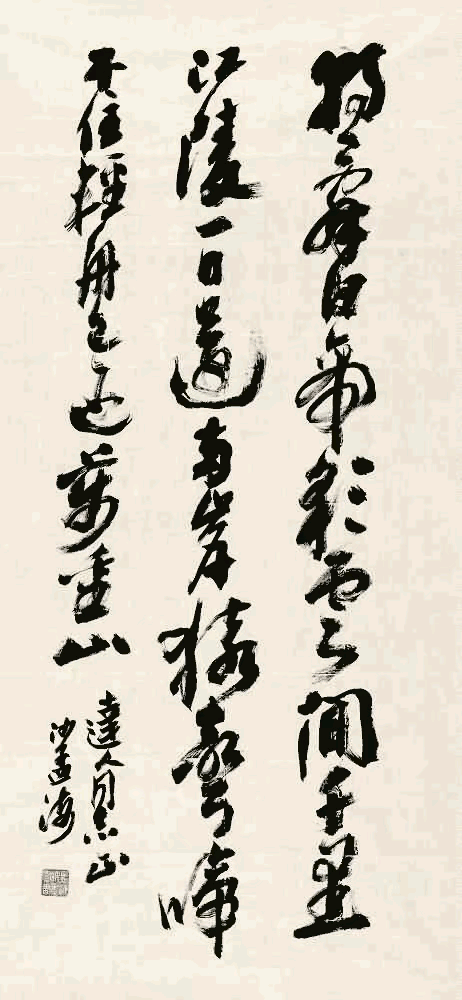 朝辭白帝彩雲間千里
江陵一日還兩岸猿聲啼
不住輕舟已過萬重山
達人同志正
沙孟海